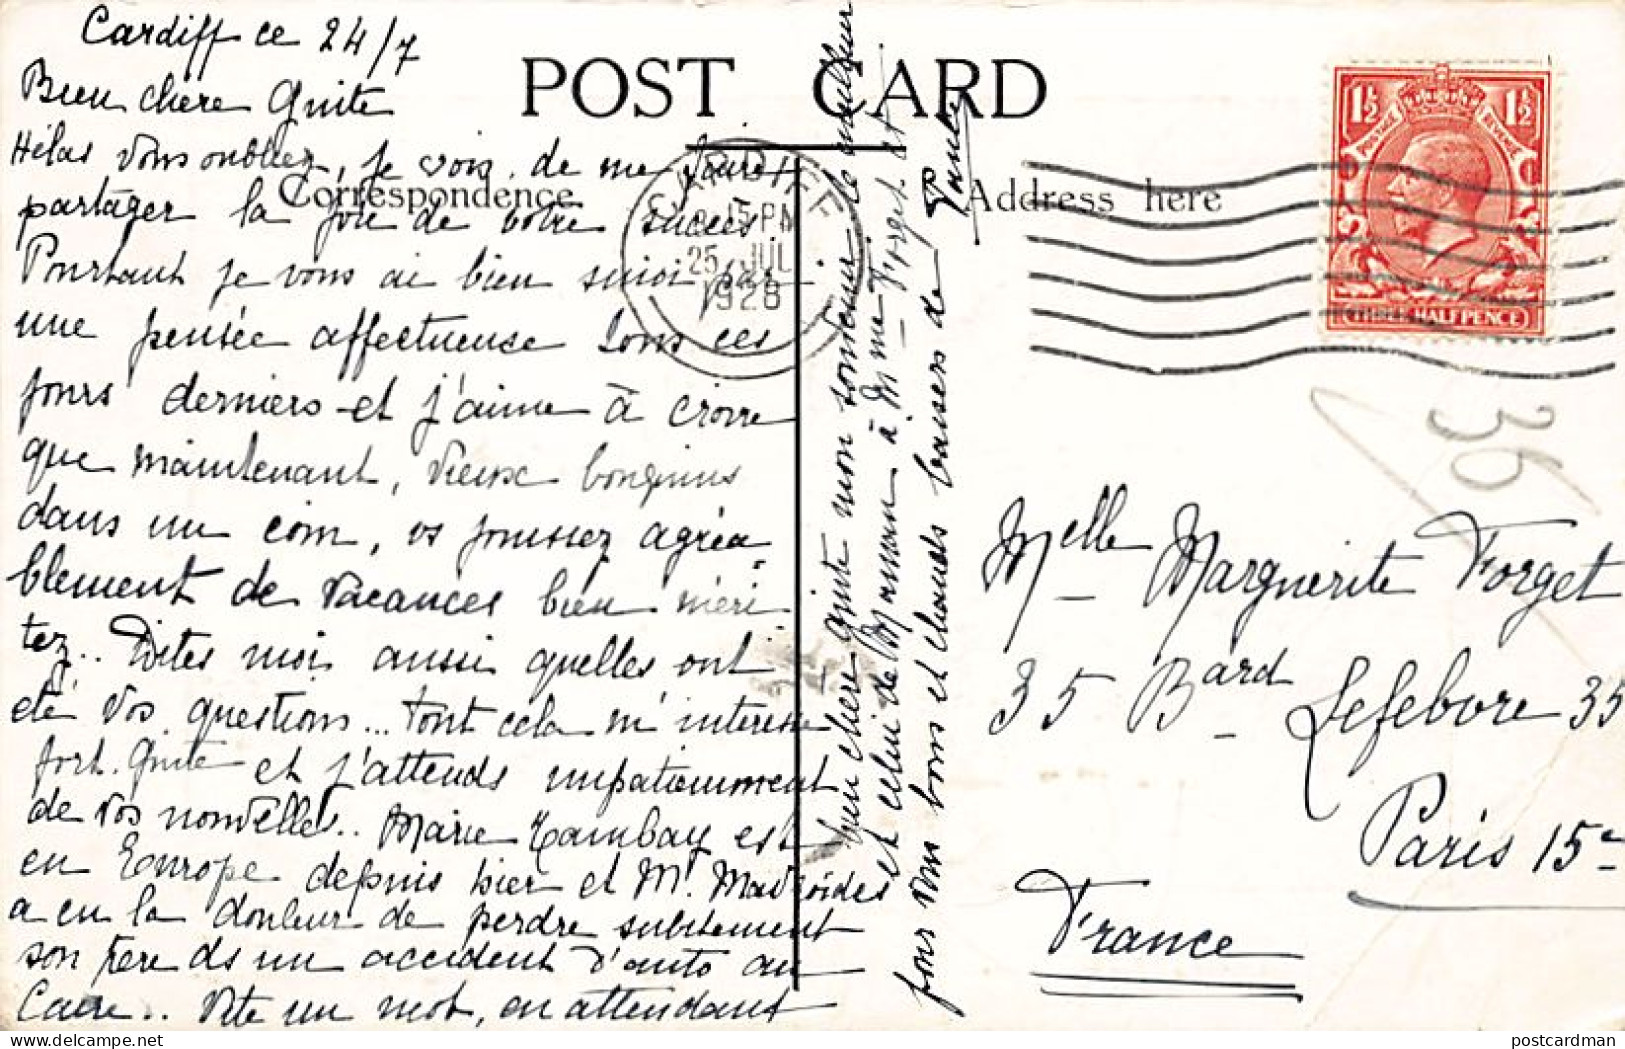 Cardiff ce 24/7
Bien chère Guite
Hélas vous oubliez, je vois, de me faire
partager la joie de votre succès.
Pourtant je vous ai bien suivi par
une pensée affectueuse tous ces
jours derniers et j'aime à croire
que maintenant, vieux bouquins
dans un coin, vs jouissez agréa-
blement de vacances bien méri-
tez.. Dites moi aussi quelles ont
été vos questions... tout cela m'intéresse
fort. Guite et j'attends impatiemment
de vos nouvelles.. Marie Tambay est
en Europe depuis hier et Mr. Mavroïdes
a eu la douleur de perdre subitement
son père ds un accident d'auto au
Caire.. Vite un mot, en attendant
bien chère Guite mon souvenir le meilleur
et celui de Maman à Mme Forget. et
pour vous bons et chauds baisers de
POST CARD
Correspondence
Address here
CARDIFF
8 15 PM
25 JUL
1928
1½ 1½
POSTAGE REVENUE
THREE HALFPENCE
35
Melle Marguerite Forget
35 Bard Lefebvre 35
Paris 15e
France
postcardman